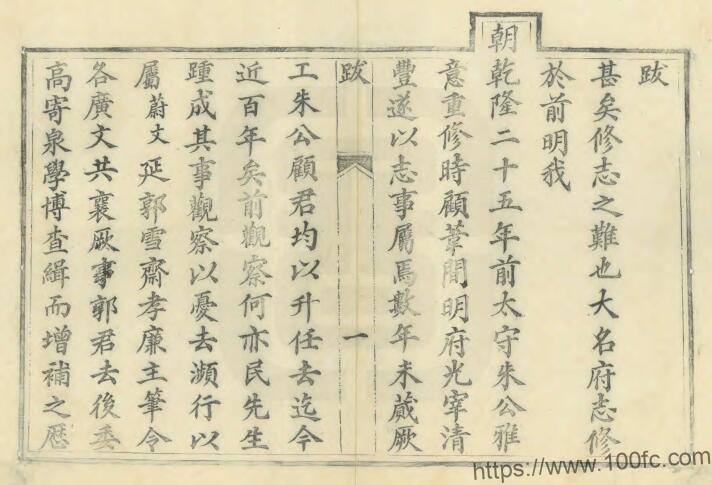 跋
甚矣修志之難也大名府志修
於前明我
朝乾隆二十五年前太守朱公雅
意重修時顧葦間明府光宰清
豐遂以志事屬焉數年未蕆厥
跋 一
工朱公顧君均以升任去迄今
近百年矣前觀察何亦民先生
踵成其事觀察以憂去瀕行以
屬蔚文延郭雪齋孝廉主筆令
各廣文共襄厥事郭君去後委
高寄泉學博查緝而增補之歷
https://www.100fc.com